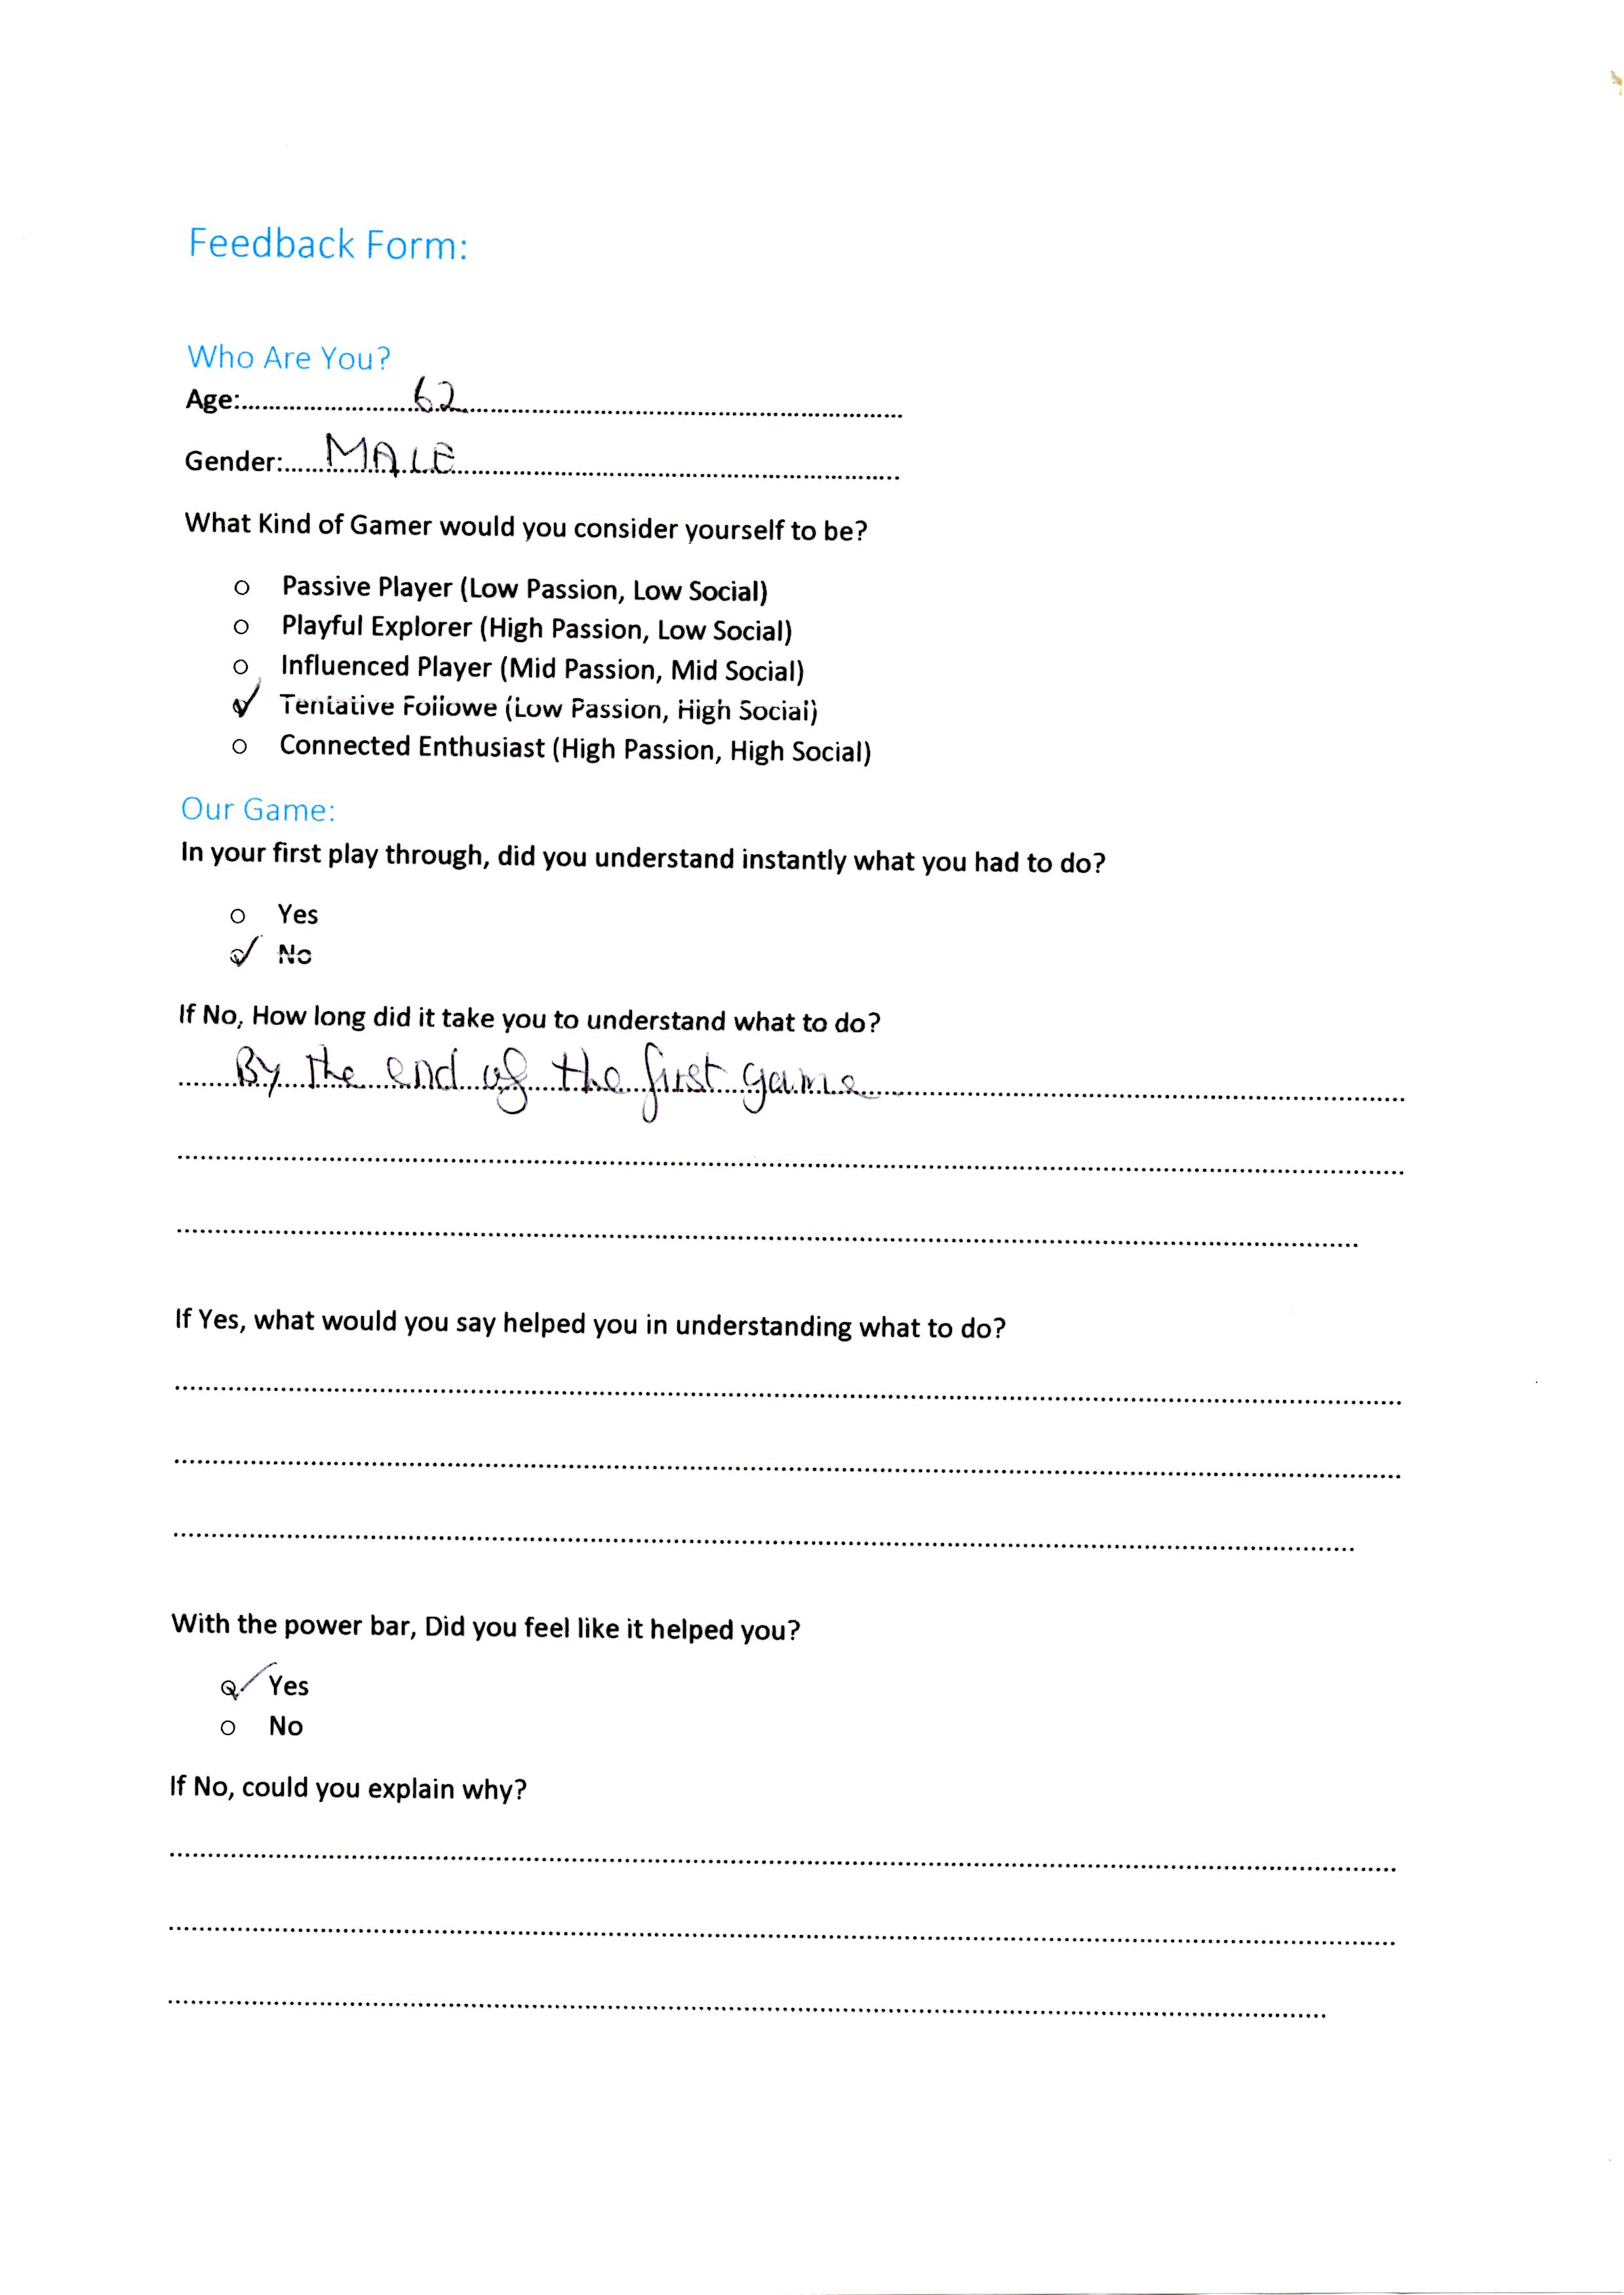 Feedback Form:
Who Are You?
Age:..........62..........
Gender:......MALE..........
What Kind of Gamer would you consider yourself to be?
o Passive Player (Low Passion, Low Social)
o Playful Explorer (High Passion, Low Social)
o Influenced Player (Mid Passion, Mid Social)
✓ Tentative Followe (Low Passion, High Social)
o Connected Enthusiast (High Passion, High Social)
Our Game:
In your first play through, did you understand instantly what you had to do?
o Yes
✓ No
If No, How long did it take you to understand what to do?
By the end of the first game
If Yes, what would you say helped you in understanding what to do?
With the power bar, Did you feel like it helped you?
✓ Yes
o No
If No, could you explain why?